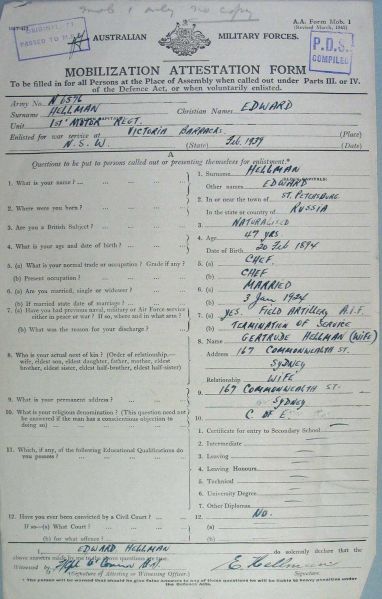 Mob 1 only no copy
A.A. Form Mob. 1
(Revised March, 1941)
ORIGINAL
PASSED TO
AUSTRALIAN MILITARY FORCES.
P.D.S.
COMPILED
MOBILIZATION ATTESTATION FORM
To be filled in for all Persons at the Place of Assembly when called out under Parts III. or IV.
of the Defence Act, or when voluntarily enlisted.
Army No. N 1576
Surname HELLMAN Christian Names EDWARD
Unit 1st MOTOR REGT.
Enlisted for war service at VICTORIA BARRACKS (Place)
N.S.W. (State) Feb. 1939 (Date)
A
Questions to be put to persons called out or presenting themselves for enlistment.*
1. What is your name? 1. Surname HELLMAN
Other names EDWARD
2. Where were you born? 2. In or near the town of ST. PETERSBURG
In the state or country of RUSSIA
3. Are you a British Subject? 3. NATURALISED
4. What is your age and date of birth? 4. Age 47 YRS
Date of Birth 20 Feb 1894
5. (a) What is your normal trade or occupation? Grade if any? 5. (a) CHEF.
(b) Present occupation? (b) CHEF
6. (a) Are you married, single or widower? 6. (a) MARRIED
(b) If married state date of marriage? (b) 3 Jan 1924
7. (a) Have you had previous naval, military or Air Force service either in peace or war? If so, where and in what arm? 7. (a) YES. FIELD ARTILLERY A.I.F.
(b) What was the reason for your discharge? (b) TERMINATION OF SERVICE
8. Who is your actual next of kin? (Order of relationship,— 8. Name GERTRUDE HELLMAN (WIFE)
wife, eldest son, eldest daughter, father, mother, eldest Address 167 COMMONWEALTH ST.
brother, eldest sister, eldest half-brother, eldest half-sister) SYDNEY
Relationship WIFE
9. What is your permanent address? 9. 167 COMMONWEALTH ST.
SYDNEY
10. What is your religious denomination? (This question need not be answered if the man has a conscientious objection to doing so) 10. C OF E
11. Which, if any, of the following Educational Qualifications do you possess? 1. Certificate for entry to Secondary School
2. Intermediate
3. Leaving
4. Leaving Honours
5. Technical
6. University Degree
7. Other Diplomas
12. Have you ever been convicted by a Civil Court? 12. NO.
If so—(a) What Court? (a)
(b) for what offence? (b)
I, EDWARD HELLMAN do solemnly declare that the
above answers made by me to the above questions are true.
Witnessed by E. Hellman
(Signature of Attesting or Witnessing Officer.) Signature
* The person will be warned that should he give false answers to any of these questions he will be liable to heavy penalties under
the Defence Act.